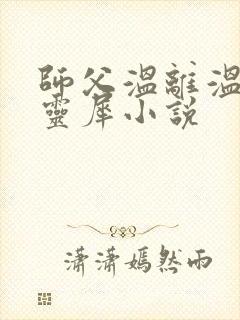 師父溫離溫
靈犀小說
瀟瀟嫣然雨